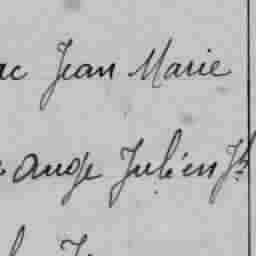 ac Jean Marie
Ange Julien Jh